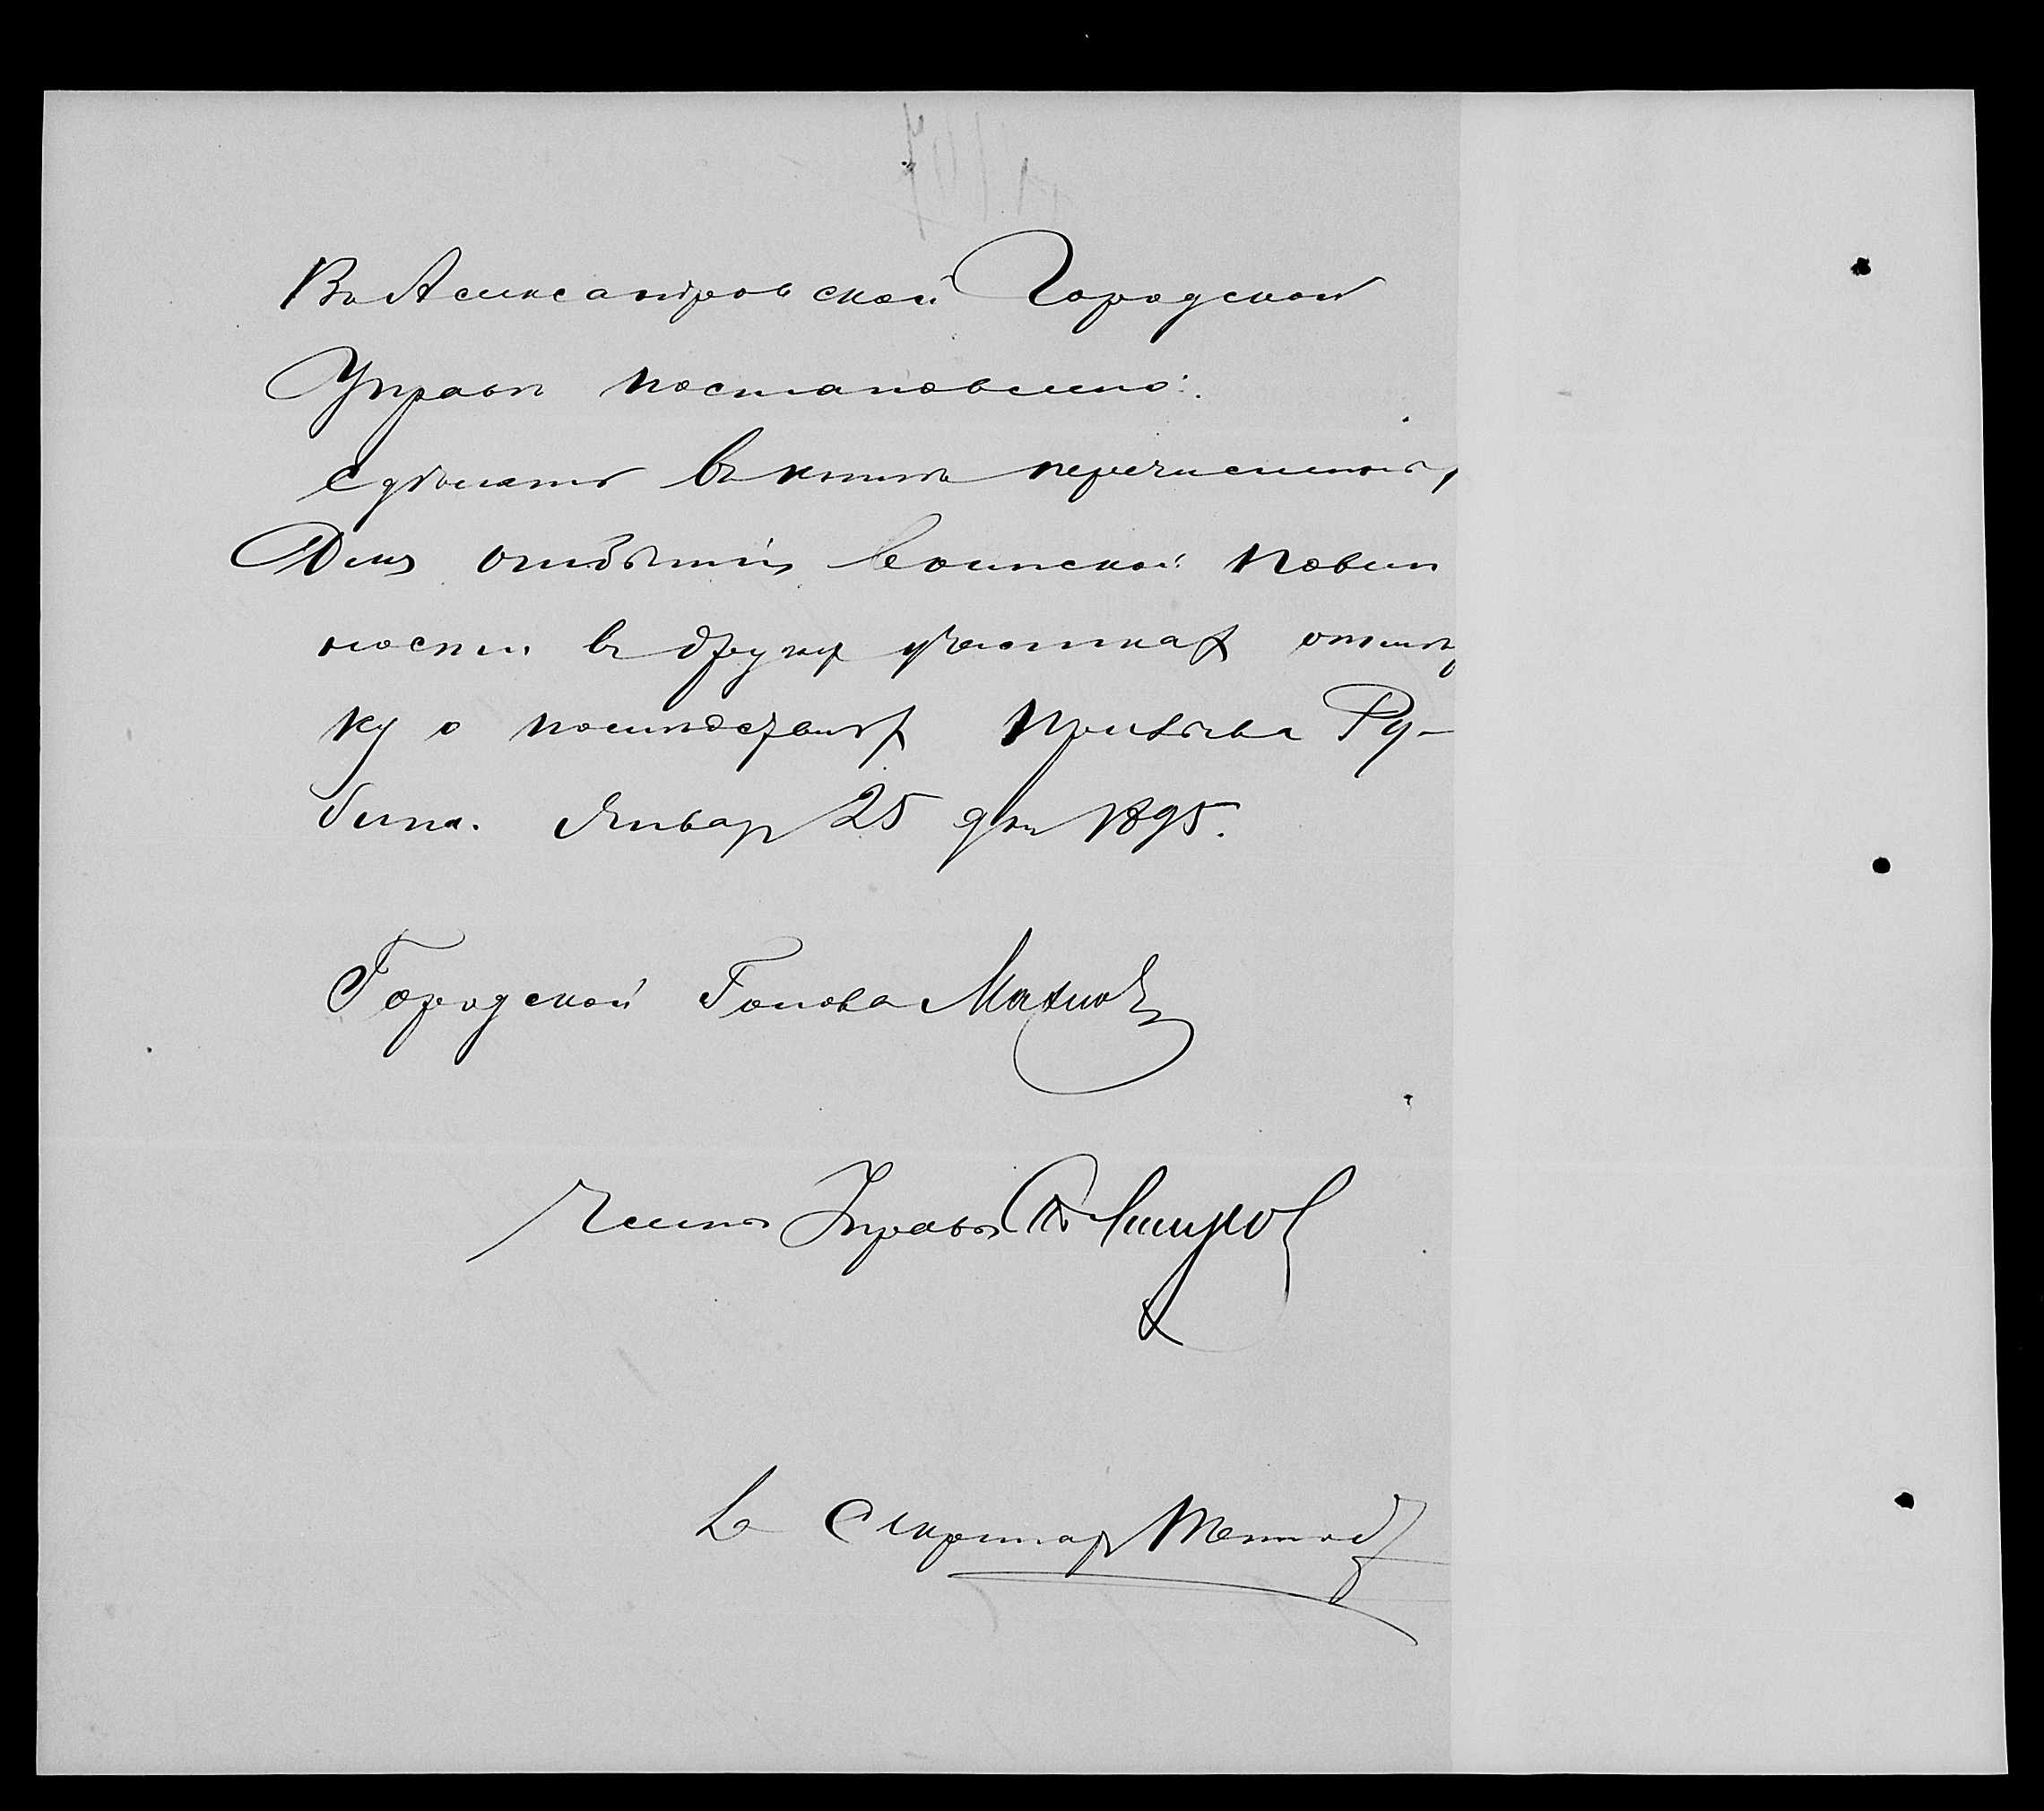 Въ Александровской Городской
Управѣ постановлено:
сдѣлать въ книгѣ перечисленныхъ,
Для отбытiя воинской повин
ности въ другихъ участкахъ отмѣт
ку о послѣдствiяхъ призыва Ру-
бина. Январь 25 дня 1895.
Городской Голова
Членъ Управы
Секретарь